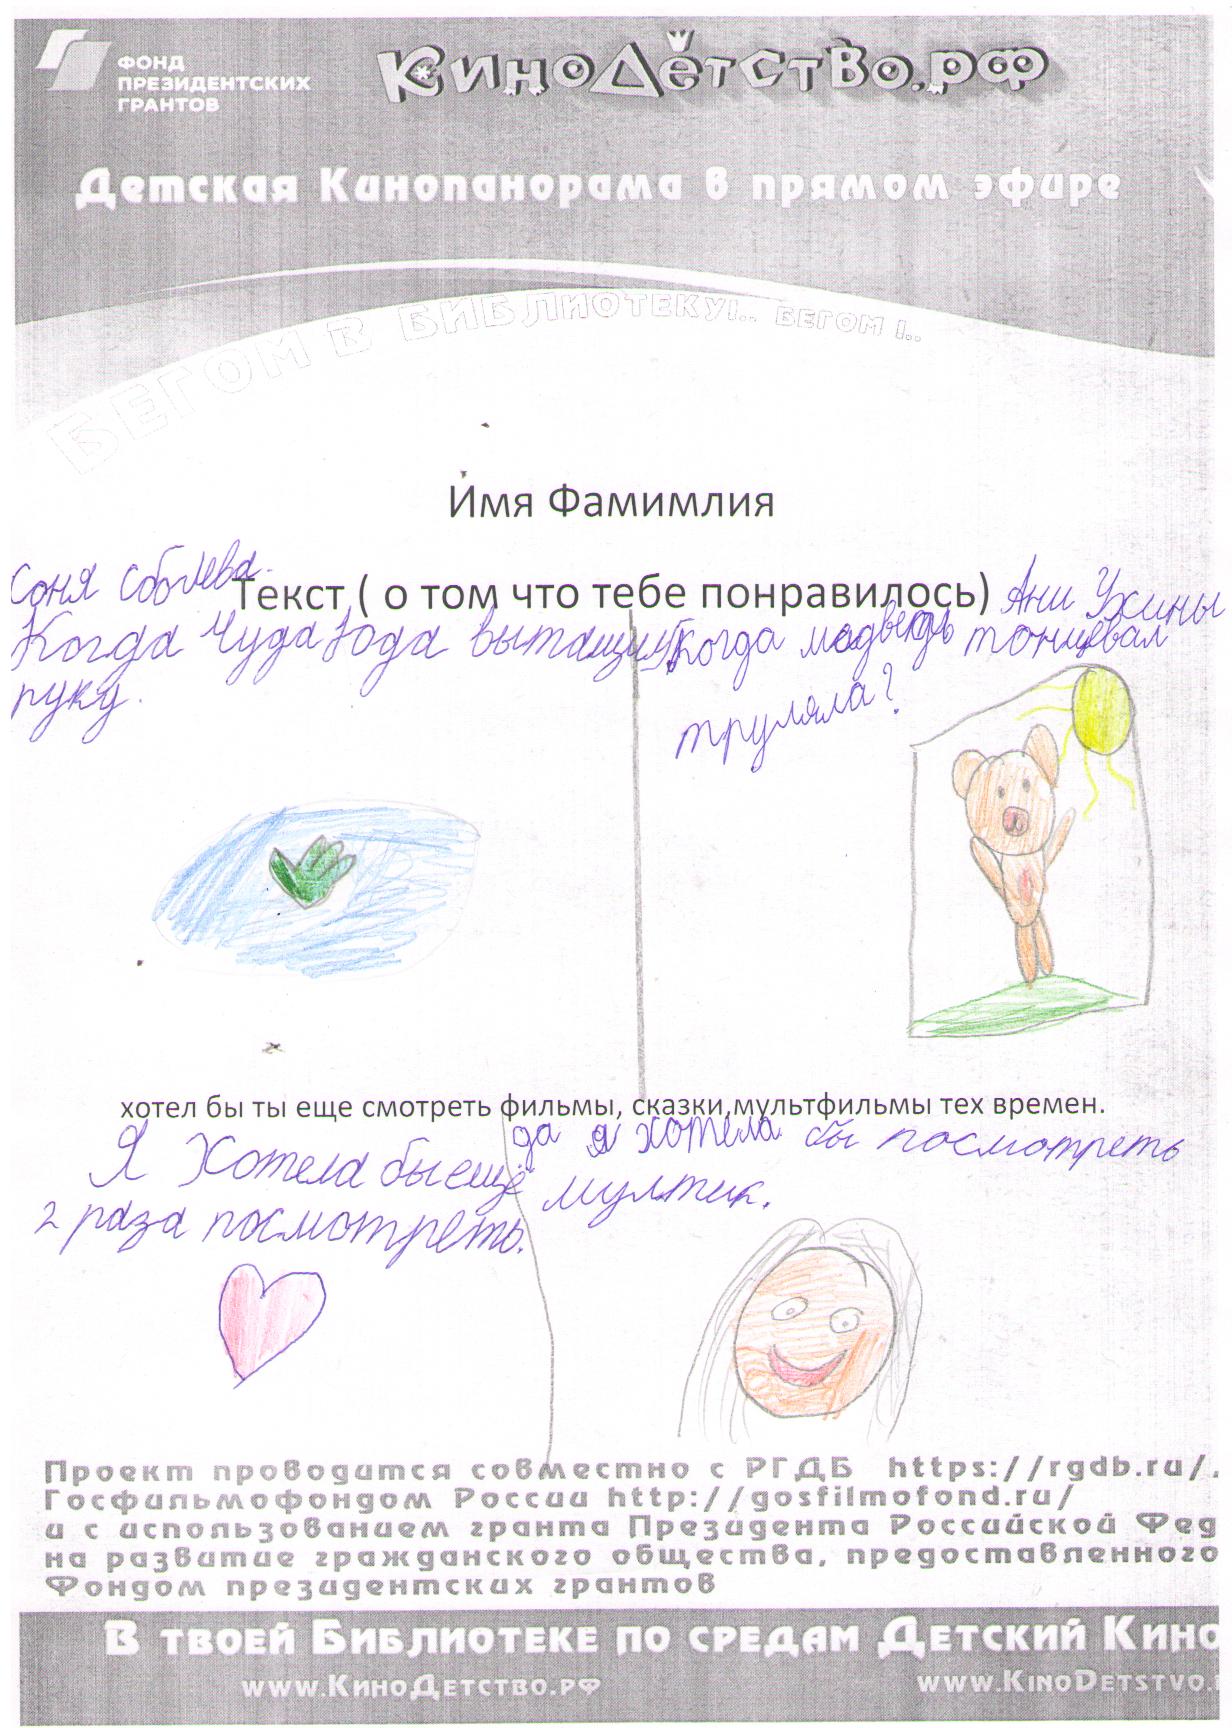 ФОНД
ПРЕЗИДЕНТСКИХ
ГРАНТОВ
КиноДетство.рф
Детская Кинопанорама в прямом эфире
БЕГОМ В БИБЛИОТЕКУ!.. БЕГОМ !..
Имя Фамимлия
Соня Соблева.
Текст ( о том что тебе понравилось)
Ани Ужины
Когда Чуда Юда вытащил
руку.
когда мадведь тонцевал
труляла?
хотел бы ты еще смотреть фильмы, сказки,мультфильмы тех времен.
Я Хотела бы ещё
2 раза посмотреть.
да я хотела бы посмотреть
мултик.
Проект проводится совместно с РГДБ https://rgdb.ru/.
Госфильмофондом России http://gosfilmofond.ru/
и с использованием гранта Президента Российской Фед
на развитие гражданского общества, предоставленного
Фондом президентских грантов
В ТВОЕЙ БИБЛИОТЕКЕ ПО СРЕДАМ ДЕТСКИЙ КИНО
WWW.КИНОДЕТСТВО.РФ
WWW.KINODETSTVO.